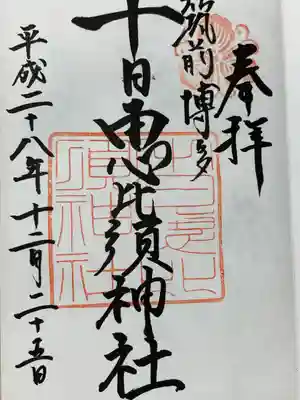 奉拝
筑前博多
十日恵比須神社
平成二十八年十二月二十五日